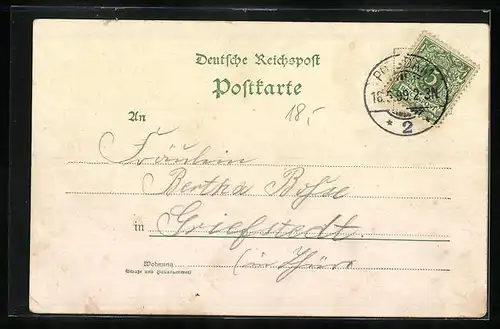 Deutsche Reichspost
Postkarte
18,-
An
Fräulein
Bertha Bohse
in Griefstedt
Wohnung
(Straße und Hausnummer)
(in Thür
5
2